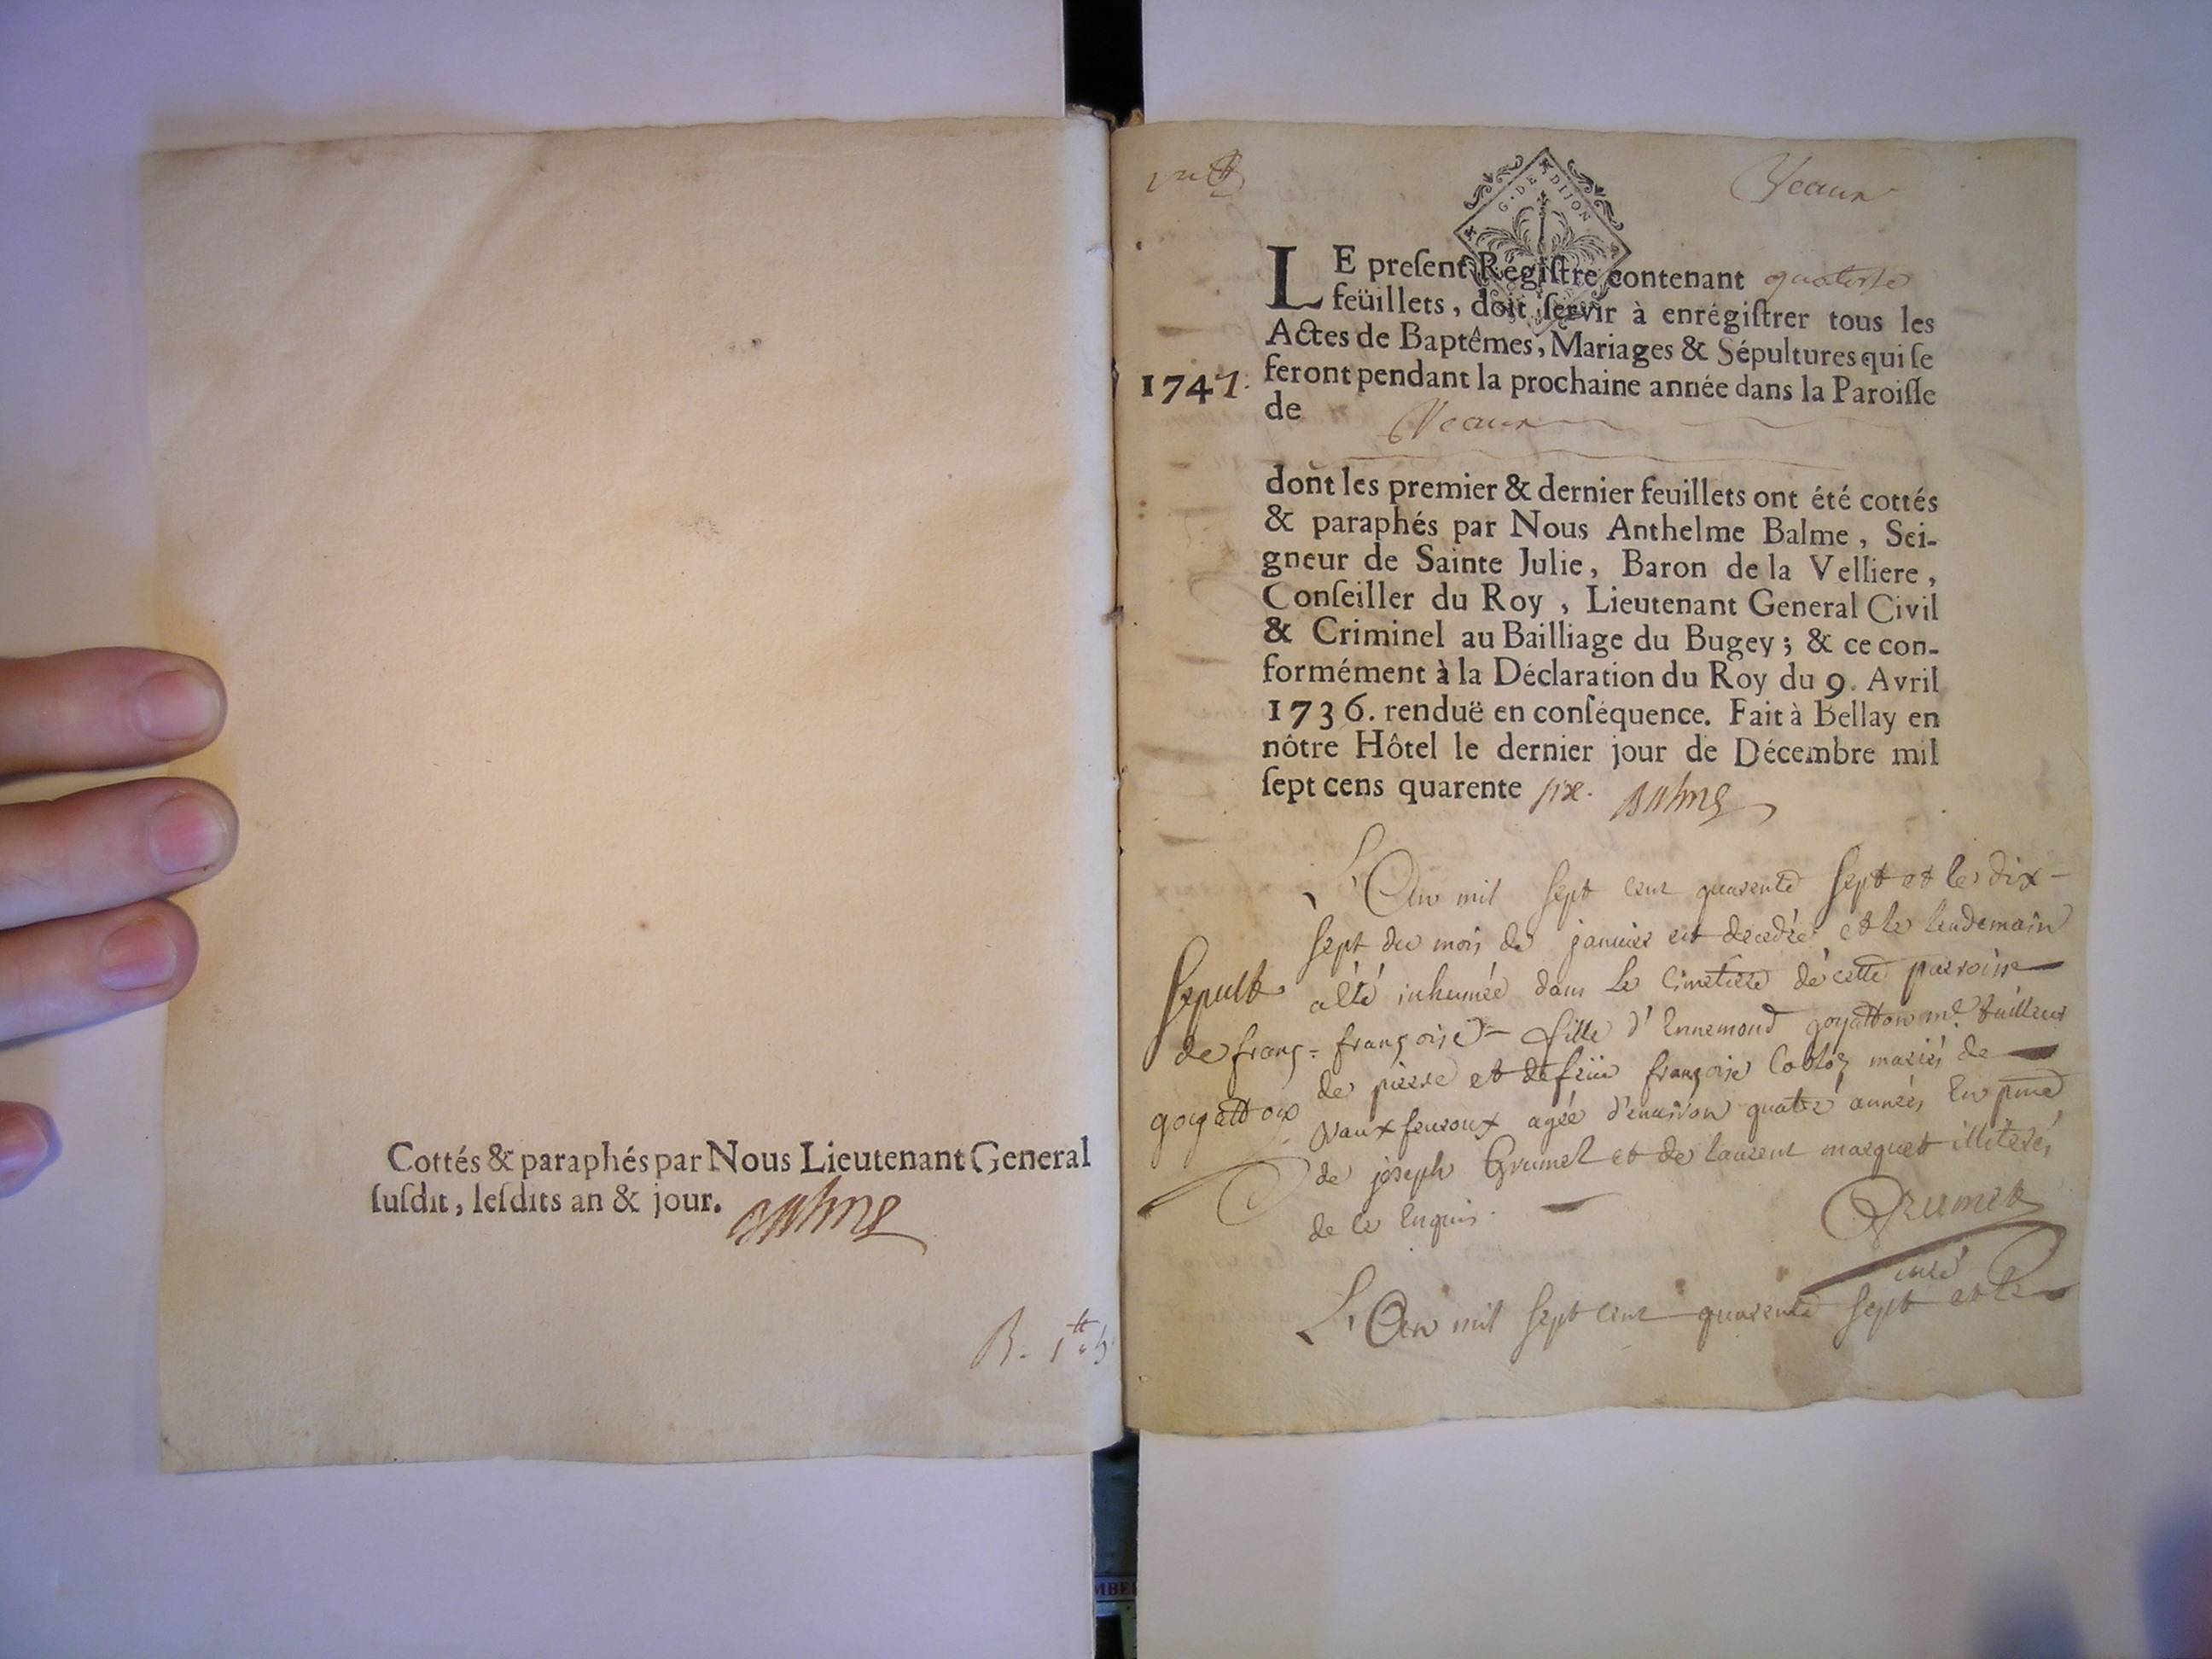 Cottés & paraphés par Nous Lieutenant General
suſdit, leſdits an & jour. Balme
Veaux
G. DE DIJON
LE preſent Régiſtre contenant quatorse
feüillets, doit ſervir à enrégiſtrer tous les
Actes de Baptêmes, Mariages & Sépultures qui ſe
1747. feront pendant la prochaine année dans la Paroiſſe
de Veaux
dont les premier & dernier feuillets ont été cottés
& paraphés par Nous Anthelme Balme, Sei-
gneur de Sainte Julie, Baron de la Velliere,
Conſeiller du Roy, Lieutenant General Civil
& Criminel au Bailliage du Bugey; & ce con-
formément à la Déclaration du Roy du 9. Avril
1736. renduë en conſéquence. Fait à Bellay en
nôtre Hôtel le dernier jour de Décembre mil
ſept cens quarente six. Balme
L'An mil sept cent quarente sept et le dix-
sept du mois de janvier est decedée et le lendemain
a été inhumée dans le cimetiere de cette parroisse
françoise fille d'Ennemond goyatton me tailleur
de pierre et de feüe françoise mariés de
vaux fevroux agée d'environ quatre années en pnce
de joseph Grumet et de laurent marquet illiterés
de ce enquis.
Sepult
de franç=
goyatton
Grumet
curé
L'An mil sept cent quarente sept et le